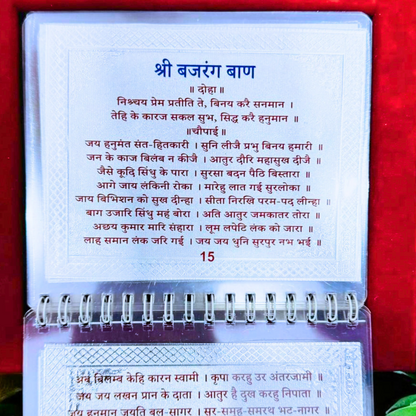 श्री बजरंग बाण
॥ दोहा॥
निश्चय प्रेम प्रतीति ते, बिनय करै सनमान ।
तेहि के कारज सकल सुभ, सिद्ध करै हनुमान ॥
॥चौपाई॥
जय हनुमंत संत-हितकारी । सुनि लीजै प्रभु बिनय हमारी ॥
जन के काज बिलंब न कीजै । आतुर दौरि महासुख दीजै ॥
जैसे कूदि सिंधु के पारा । सुरसा बदन पैठि बिस्तारा ॥
आगे जाय लंकिनी रोका । मारेहु लात गई सुरलोका ॥
जाय बिभिशन को सुख दीन्हा । सीता निरखि परम-पद लीन्हा ॥
बाग उजारि सिंधु महं बोरा । अति आतुर जमकातर तोरा ॥
अछय कुमार मारि संहारा । लूम लपेटि लंक को जारा ॥
लाह समान लंक जरि गई । जय जय धुनि सुरपुर नभ भई ॥
15
अब बिलम्ब केहि कारन स्वामी । कृपा करहु उर अंतरजामी ॥
जय जय लखन प्रान के दाता । आतुर है दुख करहु निपाता ॥
जय हनुमान जयति बल-सागर । सुर-समूह-समरथ भट-नागर